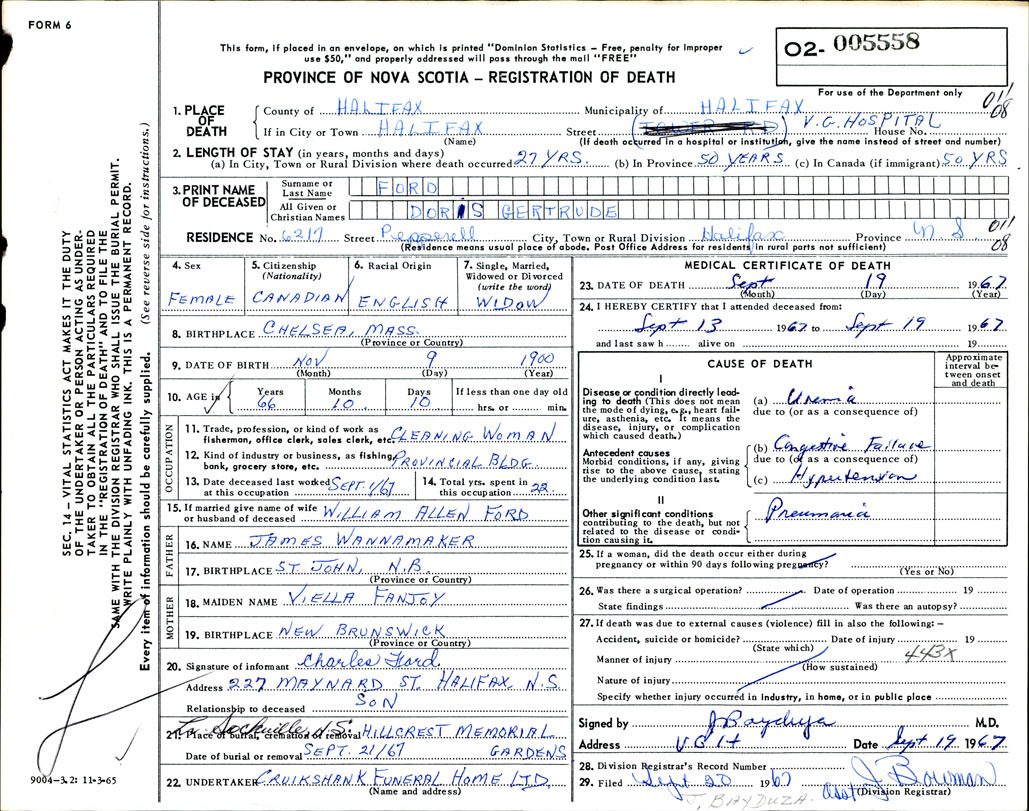 FORM 6
This form, if placed in an envelope, on which is printed "Dominion Statistics – Free, penalty for improper
use $50," and properly addressed will pass through the mail "FREE"
O2- 005558
PROVINCE OF NOVA SCOTIA – REGISTRATION OF DEATH
For use of the Department only
011
08
1. PLACE OF DEATH
County of HALIFAX Municipality of HALIFAX
If in City or Town HALIFAX Street V.G. HOSPITAL House No.
(Name) (If death occurred in a hospital or institution, give the name instead of street and number)
2. LENGTH OF STAY (in years, months and days)
(a) In City, Town or Rural Division where death occurred 27 YRS. (b) In Province 50 YEARS (c) In Canada (if immigrant) 50 YRS
3. PRINT NAME OF DECEASED
Surname or Last Name FORD
All Given or Christian Names DORIS GERTRUDE
RESIDENCE No. 6217 Street Pepperell City, Town or Rural Division Halifax Province N S.
011
08
(Residence means usual place of abode. Post Office Address for residents in rural parts not sufficient)
4. Sex FEMALE
5. Citizenship (Nationality) CANADIAN
6. Racial Origin ENGLISH
7. Single, Married, Widowed or Divorced (write the word) WIDOW
8. BIRTHPLACE CHELSEA, MASS.
(Province or Country)
9. DATE OF BIRTH NOV 9 1900
(Month) (Day) (Year)
10. AGE in Years 66 Months 10 Days 10 If less than one day old hrs. or min.
OCCUPATION
11. Trade, profession, or kind of work as fisherman, office clerk, sales clerk, etc. CLEANING WOMAN
12. Kind of industry or business, as fishing, bank, grocery store, etc. PROVINCIAL BLDG.
13. Date deceased last worked at this occupation SEPT. 1/67
14. Total yrs. spent in this occupation 22
15. If married give name of wife or husband of deceased WILLIAM ALLEN FORD
FATHER
16. NAME JAMES WANNAMAKER
17. BIRTHPLACE ST JOHN, N.B.
(Province or Country)
MOTHER
18. MAIDEN NAME VIELLA FANJOY
19. BIRTHPLACE NEW BRUNSWICK
(Province or Country)
20. Signature of informant Charles Ford.
Address 227 MAYNARD ST. HALIFAX, N.S.
Relationship to deceased SON
Sackville N.S.
21. Place of burial, cremation or removal HILLCREST MEMORIAL
Date of burial or removal SEPT. 21/67 GARDENS
22. UNDERTAKER CRUIKSHANK FUNERAL HOME LTD.
(Name and address)
MEDICAL CERTIFICATE OF DEATH
23. DATE OF DEATH Sept 19 1967
(Month) (Day) (Year)
24. I HEREBY CERTIFY that I attended deceased from:
Sept 13 1967 to Sept 19 1967
and last saw h alive on 19
CAUSE OF DEATH
Approximate interval between onset and death
I
Disease or condition directly leading to death (This does not mean the mode of dying, e.g., heart failure, asthenia, etc. It means the disease, injury, or complication which caused death.)
(a) Uremia
due to (or as a consequence of)
Antecedent causes
Morbid conditions, if any, giving rise to the above cause, stating the underlying condition last.
(b) Congestive Failure
due to (or as a consequence of)
(c) Hypertension
II
Other significant conditions contributing to the death, but not related to the disease or condition causing it.
Pneumonia
25. If a woman, did the death occur either during pregnancy or within 90 days following pregnancy?
(Yes or No)
26. Was there a surgical operation? Date of operation 19
State findings Was there an autopsy?
27. If death was due to external causes (violence) fill in also the following: –
Accident, suicide or homicide? Date of injury 19
(State which)
Manner of injury 443X
(How sustained)
Nature of injury
Specify whether injury occurred in industry, in home, or in public place
Signed by J Bayduza M.D.
Address V G H Date Sept 19 1967
28. Division Registrar's Record Number
29. Filed Sept 20 1967 asst J. Bowman
(Division Registrar)
J. BAYDUZA.
SEC. 14 – VITAL STATISTICS ACT MAKES IT THE DUTY
OF THE UNDERTAKER OR PERSON ACTING AS UNDER-
TAKER TO OBTAIN ALL THE PARTICULARS REQUIRED
IN THE "REGISTRATION OF DEATH" AND TO FILE THE
SAME WITH THE DIVISION REGISTRAR WHO SHALL ISSUE THE BURIAL PERMIT.
WRITE PLAINLY WITH UNFADING INK. THIS IS A PERMANENT RECORD.
Every item of information should be carefully supplied. (See reverse side for instructions.)
9004-3.2: 11-3-65